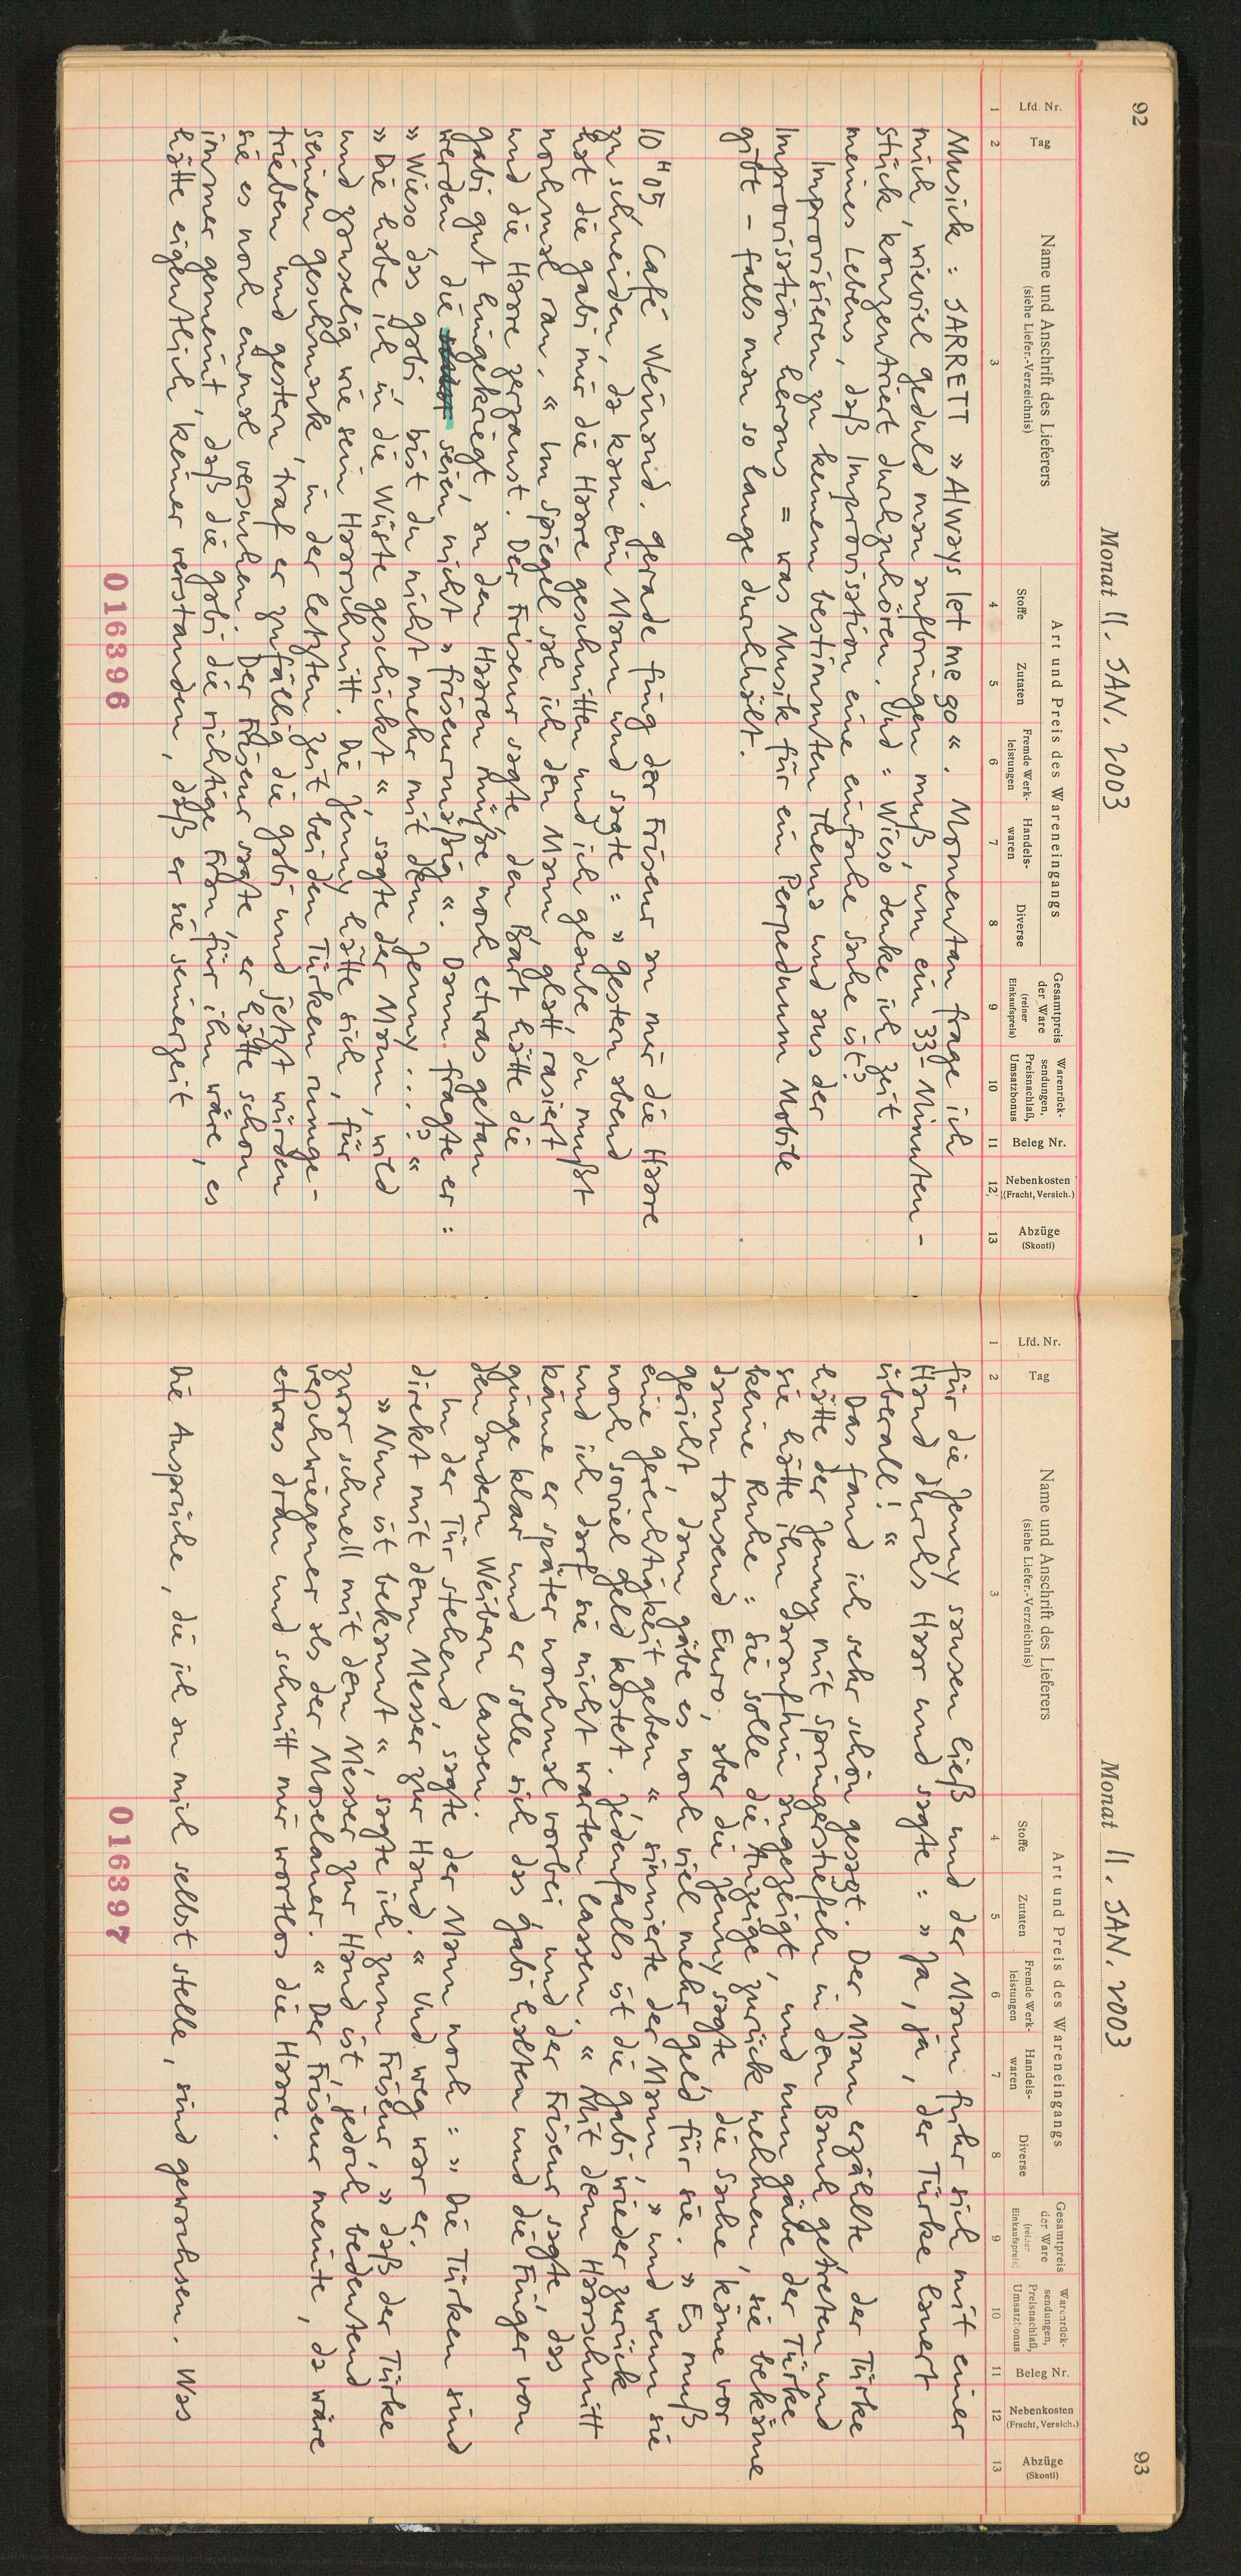 92
Monat 11. JAN. 2003
Lfd. Nr.
Tag
Name und Anschrift des Lieferers
(siehe Liefer.-Verzeichnis)
Art und Preis des Wareneingangs
Stoffe
Zutaten
Fremde Werk-
leistungen
Handels-
waren
Diverse
Gesamtpreis
der Ware
(reiner
Einkaufspreis)
Warenrück-
sendungen,
Preisnachlaß,
Umsatzbonus
Beleg Nr.
Nebenkosten
(Fracht, Versich.)
Abzüge
(Skonti)
1 2 3 4 5 6 7 8 9 10 11 12 13
Musick : JARRETT » Always let me go «. Momentan frage ich
mich, wieviel Geduld man aufbringen muß, um ein 33-Minuten-
stück konzentriert durchzuhören. Und : Wieso denke ich Zeit
meines Lebens, daß Improvisation eine einfache Sache ist?
Improvisieren zu keinem bestimmten Thema und aus der
Improvisation heraus = was Musik für ein Perpeduum Mobile
gibt – falls man so lange durchhält.
10 H 05 Café Weinand. Gerade fing der Friseur an mir die Haare
zu schneiden, da kam ein Mann und sagte : » Gestern abend
hat die Gabi mir die Haare geschnitten und ich glaube, du mußt
nochmal ran. « Im Spiegel sah ich den Mann glatt rasiert
und die Haare zerzaust. Der Friseur sagte, den Bart hätte die
Gabi gut hingekriegt, an den Haaren müße noch etwas getan
werden, die seien nicht » friseurmäßig «. Dann fragte er :
» Wieso das Gabi, bist du nicht mehr mit dem Jenny ...? «
» Die habe ich in die Wüste geschickt « sagte der Mann, wild
und grauselig wie sein Haarschnitt. Die Jenny hätte sich, für
seinen Geschmack in der letzten Zeit bei den Türken rumge-
trieben und gestern traf er zufällig die Gabi und jetzt würden
sie es noch einmal versuchen. Der Friseur sagte, er hätte schon
immer gemeint, daß die Gabi die richtige Frau für ihn wäre, es
hätte eigentlich keiner verstanden, daß er sie seinerzeit
016396
93
Monat 11. JAN. 2003
Lfd. Nr.
Tag
Name und Anschrift des Lieferers
(siehe Liefer.-Verzeichnis)
Art und Preis des Wareneingangs
Stoffe
Zutaten
Fremde Werk-
leistungen
Handels-
waren
Diverse
Gesamtpreis
der Ware
(reiner
Einkaufspreis)
Warenrück-
sendungen,
Preisnachlaß,
Umsatzbonus
Beleg Nr.
Nebenkosten
(Fracht, Versich.)
Abzüge
(Skonti)
1 2 3 4 5 6 7 8 9 10 11 12 13
für die Jenny sausen ließ und der Mann fuhr sich mit einer
Hand durchs Haar und sagte : » Ja, ja, der Türke lauert
überall! «
Das fand ich sehr schön gesagt. Der Mann erzählte der Türke
hätte der Jenny mit Springerstiefeln in den Bauch getreten und
sie hätte ihn daraufhin angezeigt, und nun gäbe der Türke
keine Ruhe : Sie solle die Anzeige zurück nehmen, sie bekäme
dann tausend Euro, aber die Jenny sagte die Sache käme vor
Gericht, dann gäbe es noch viel mehr Geld für sie. » Es muß
eine Gerechtigkeit geben « sinnierte der Mann, » und wenn sie
noch soviel Geld kostet. Jedenfalls ist die Gabi wieder zurück
und ich darf sie nicht warten lassen. « Mit dem Haarschnitt
käme er später nochmal vorbei und der Friseur sagte, das
ginge klar und er solle sich das Gabi halten und die Finger von
den andern Weibern lassen.
In der Tür stehend, sagte der Mann noch : » Die Türken sind
direkt mit dem Messer zur Hand. « Und weg war er.
» Nun ist bekannt « sagte ich zum Friseur, » daß der Türke
zwar schnell mit dem Messer zur Hand ist, jedoch bedeutend
verschwiegener als der Moselaner. « Der Friseur meinte, da wäre
etwas dran und schnitt mir wortlos die Haare.
Die Ansprüche, die ich an mich selbst stelle, sind gewachsen. Was
016397